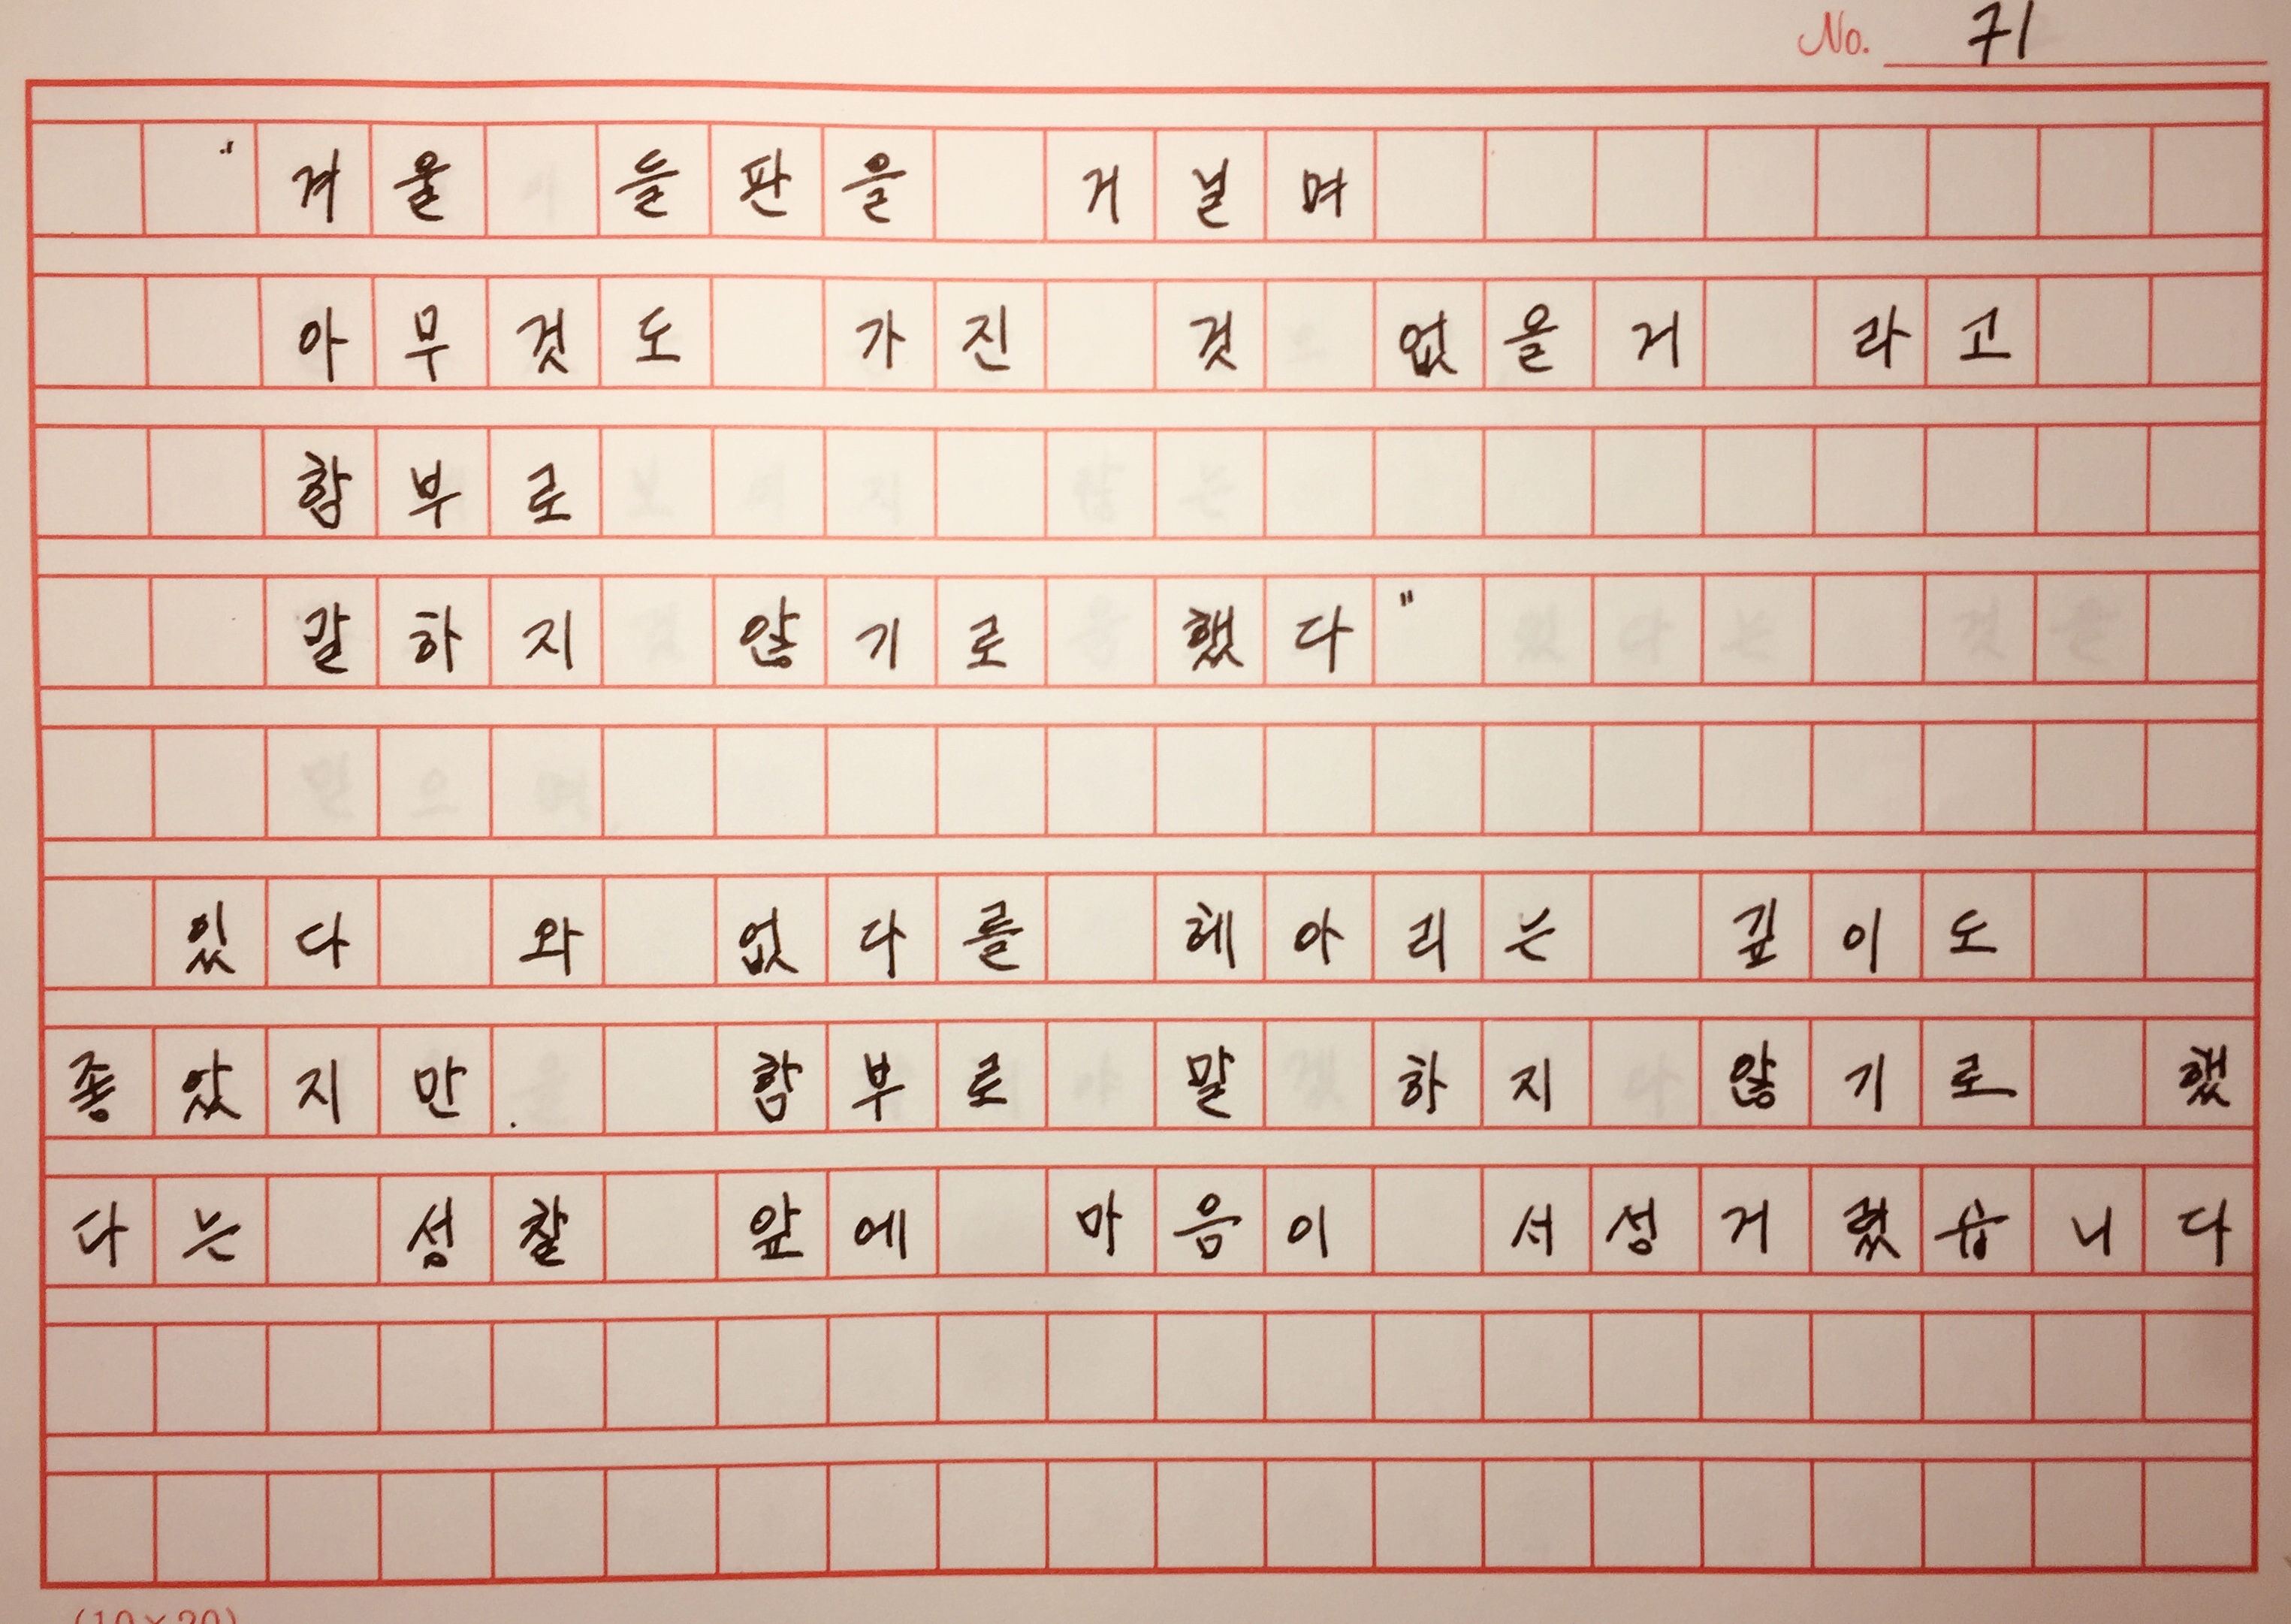 No. 71
"겨울 들판을 거닐며
아무것도 가진 것 없을거 라고
함부로
말하지 않기로 했다"
있다 와 없다를 헤아리는 깊이도
좋았지만. 함부로 말하지 않기로 했
다는 성찰 앞에 마음이 서성거렸습니다
(10×20)